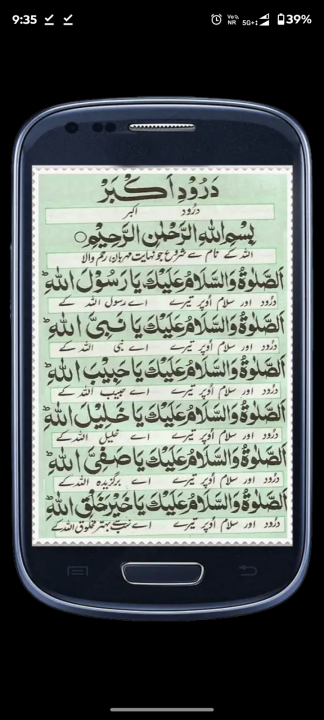 9:35
Vo)) NR 5G+ 39%
دَرُوْدِ اَکْبَرْ
درُود اکبر
بِسْمِ اللّٰهِ الرَّحْمٰنِ الرَّحِيْمِ
اللہ کے نام سے شروع جو نہایت مہربان رحم والا
اَلصَّلٰوةُ وَالسَّلَامُ عَلَيْكَ يَا رَسُوْلَ اللّٰهِ ط
درُود اور سلام اُوپر تیرے اے رسول اللہ کے
اَلصَّلٰوةُ وَالسَّلَامُ عَلَيْكَ يَا نَبِيَّ اللّٰهِ ط
درُود اور سلام اُوپر تیرے اے نبی اللہ کے
اَلصَّلٰوةُ وَالسَّلَامُ عَلَيْكَ يَا حَبِيْبَ اللّٰهِ ط
درُود اور سلام اُوپر تیرے اے حبیب اللہ کے
اَلصَّلٰوةُ وَالسَّلَامُ عَلَيْكَ يَا خَلِيْلَ اللّٰهِ ط
درُود اور سلام اُوپر تیرے اے خلیل اللہ کے
اَلصَّلٰوةُ وَالسَّلَامُ عَلَيْكَ يَا صَفِيَّ اللّٰهِ ط
درُود اور سلام اُوپر تیرے اے برگزیدہ اللہ کے
اَلصَّلٰوةُ وَالسَّلَامُ عَلَيْكَ يَا خَيْرَ خَلْقِ اللّٰهِ ط
درُود اور سلام اُوپر تیرے اے سب بہتر مخلوق اللہ کے